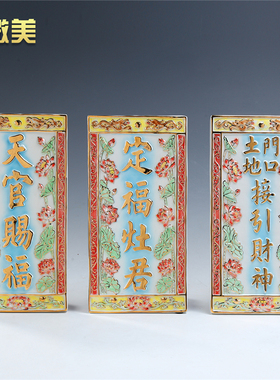 美
天官賜福
定福灶君
門口土地
接引財神